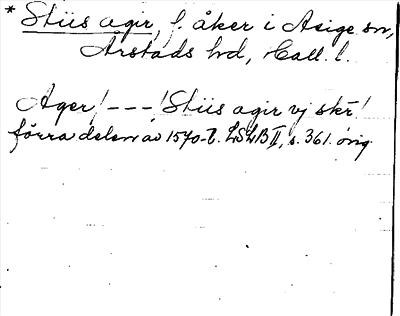 * Stiis agir, f. åker i Asige sn,
Årstads hd, Hall. l.
Ager! - - - ! Stiis agir vj skr!
förra delen av 1570-t. LSLB II, s. 361. orig.